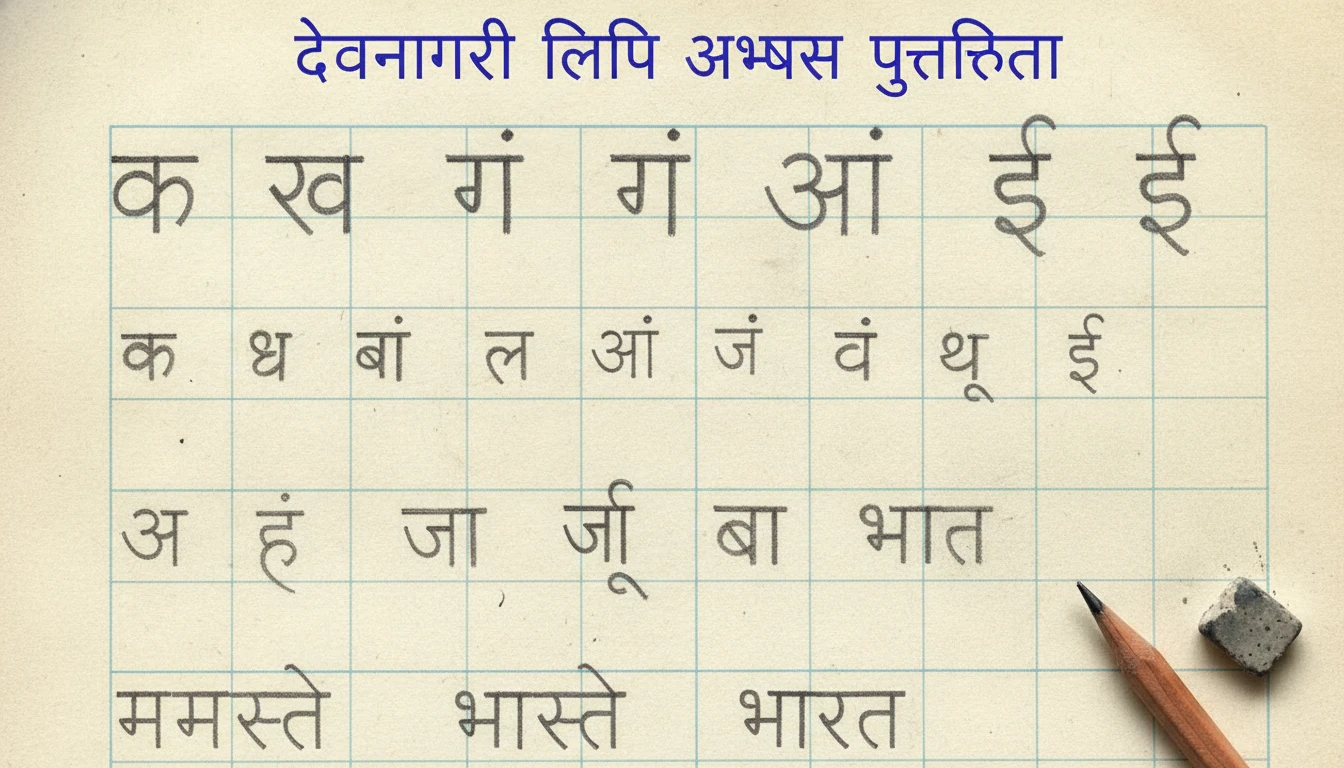 देवनागरी लिपि अभ्षस पुत्तक्तिता
क ख गं गं आं ई ई
क ध बां ल आं जं वं थू ई
अ हं जा र्जाू बा भात
ममस्ते भास्ते भारत